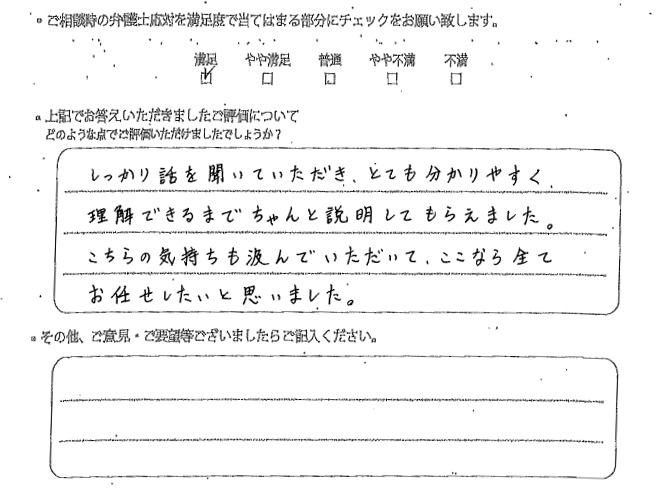 ご相談時の弁護士応対を満足度で当てはまる部分にチェックをお願い致します。
満足 やや満足 普通 やや不満 不満
☑ □ □ □ □
上記でお答えいただきましたご評価について
どのような点でご評価いただけましたでしょうか？
しっかり話を聞いていただき、とても分かりやすく、
理解できるまでちゃんと説明してもらえました。
こちらの気持ちも汲んでいただいて、ここなら全て
お任せしたいと思いました。
その他、ご意見・ご要望等ございましたらご記入ください。